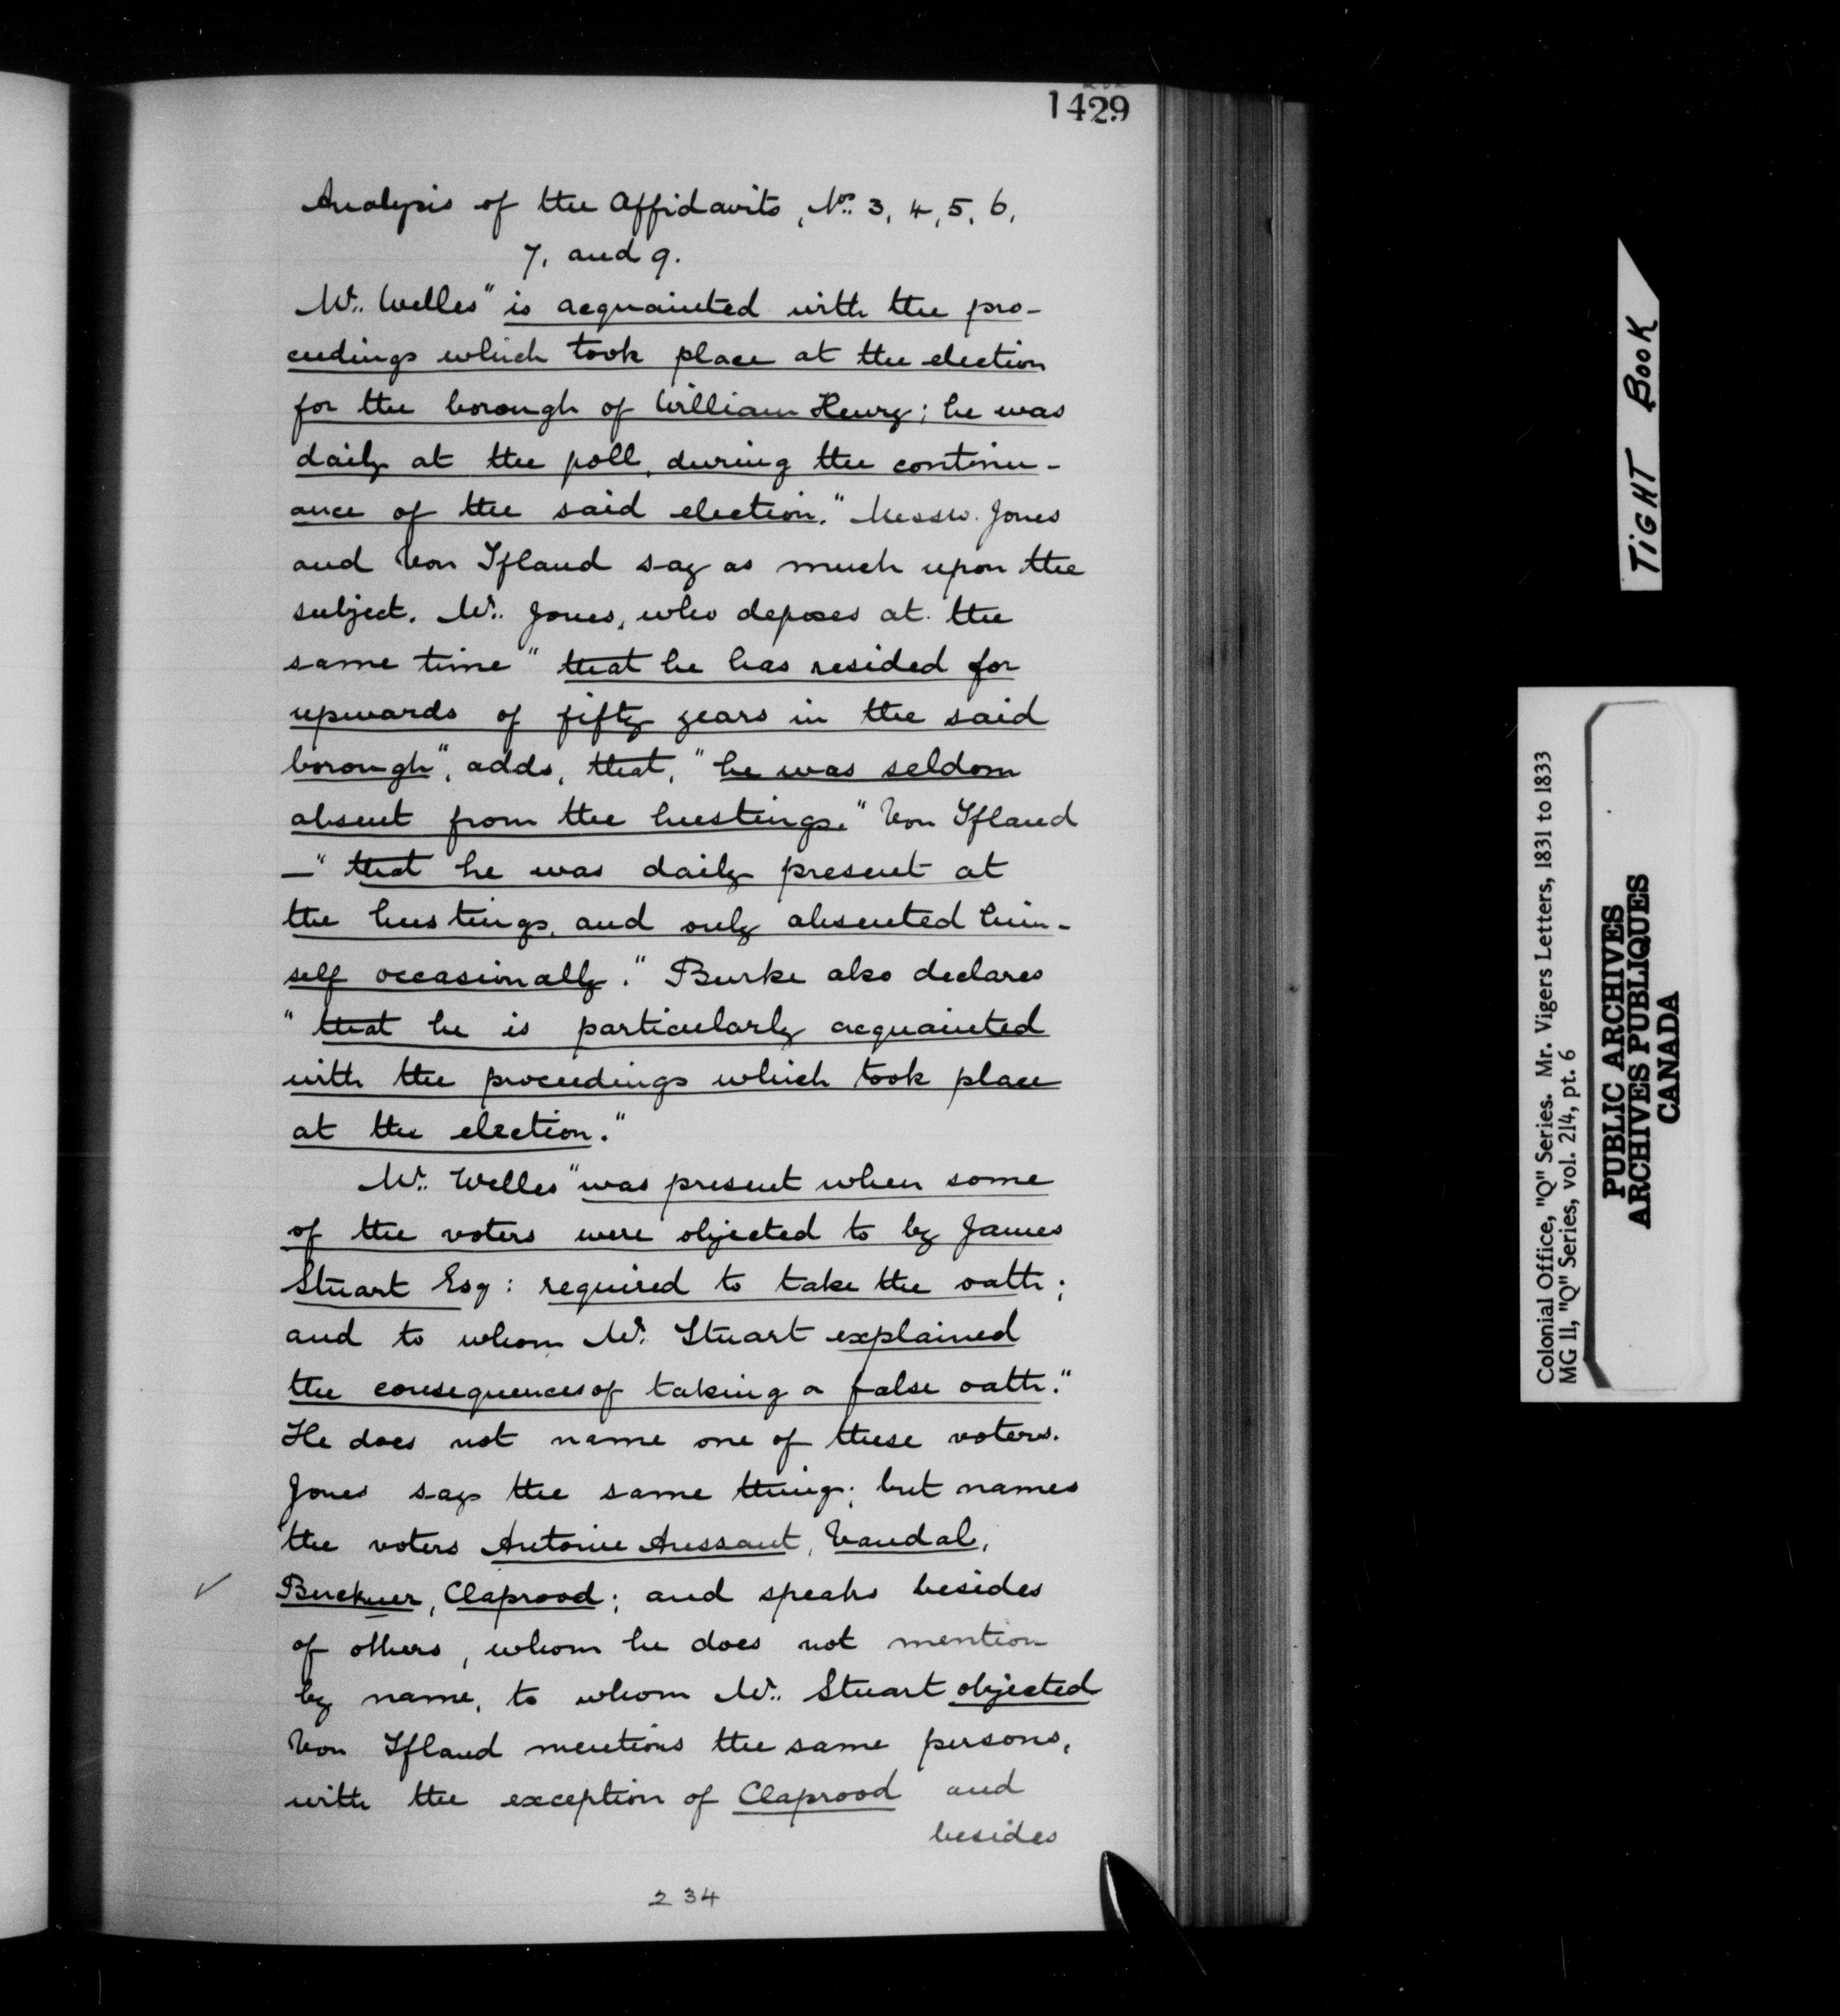 1429
Analysis of the Affidavits, Nos. 3, 4, 5, 6,
7, and 9.
Mr. Welles "is acquainted with the pro-
ceedings which took place at the election
for the borough of William Henry; he was
daily at the poll, during the continu-
ance of the said election." Messrs. Jones
and Von Ifland say as much upon the
subject. Mr. Jones, who deposes at the
same time "that he has resided for
upwards of fifty years in the said
borough", adds, that, "he was seldom
absent from the hustings." Von Ifland
—"that he was daily present at
the hustings, and only absented him-
self occasionally." Burke also declares
"that he is particularly acquainted
with the proceedings which took place
at the election."
Mr. Welles "was present when some
of the voters were objected to by James
Stuart Esq: required to take the oath;
and to whom Mr. Stuart explained
the consequences of taking a false oath."
He does not name one of these voters.
Jones says the same thing; but names
the voters Antoine Aussant, Vandal,
Buckner, Claprood; and speaks besides
of others, whom he does not mention
by name, to whom Mr. Stuart objected
Von Ifland mentions the same persons,
with the exception of Claprood and
besides
234
TIGHT BOOK
Colonial Office, "Q" Series. Mr. Vigers Letters, 1831 to 1833
MG 11, "Q" Series, vol. 214, pt. 6
PUBLIC ARCHIVES
ARCHIVES PUBLIQUES
CANADA